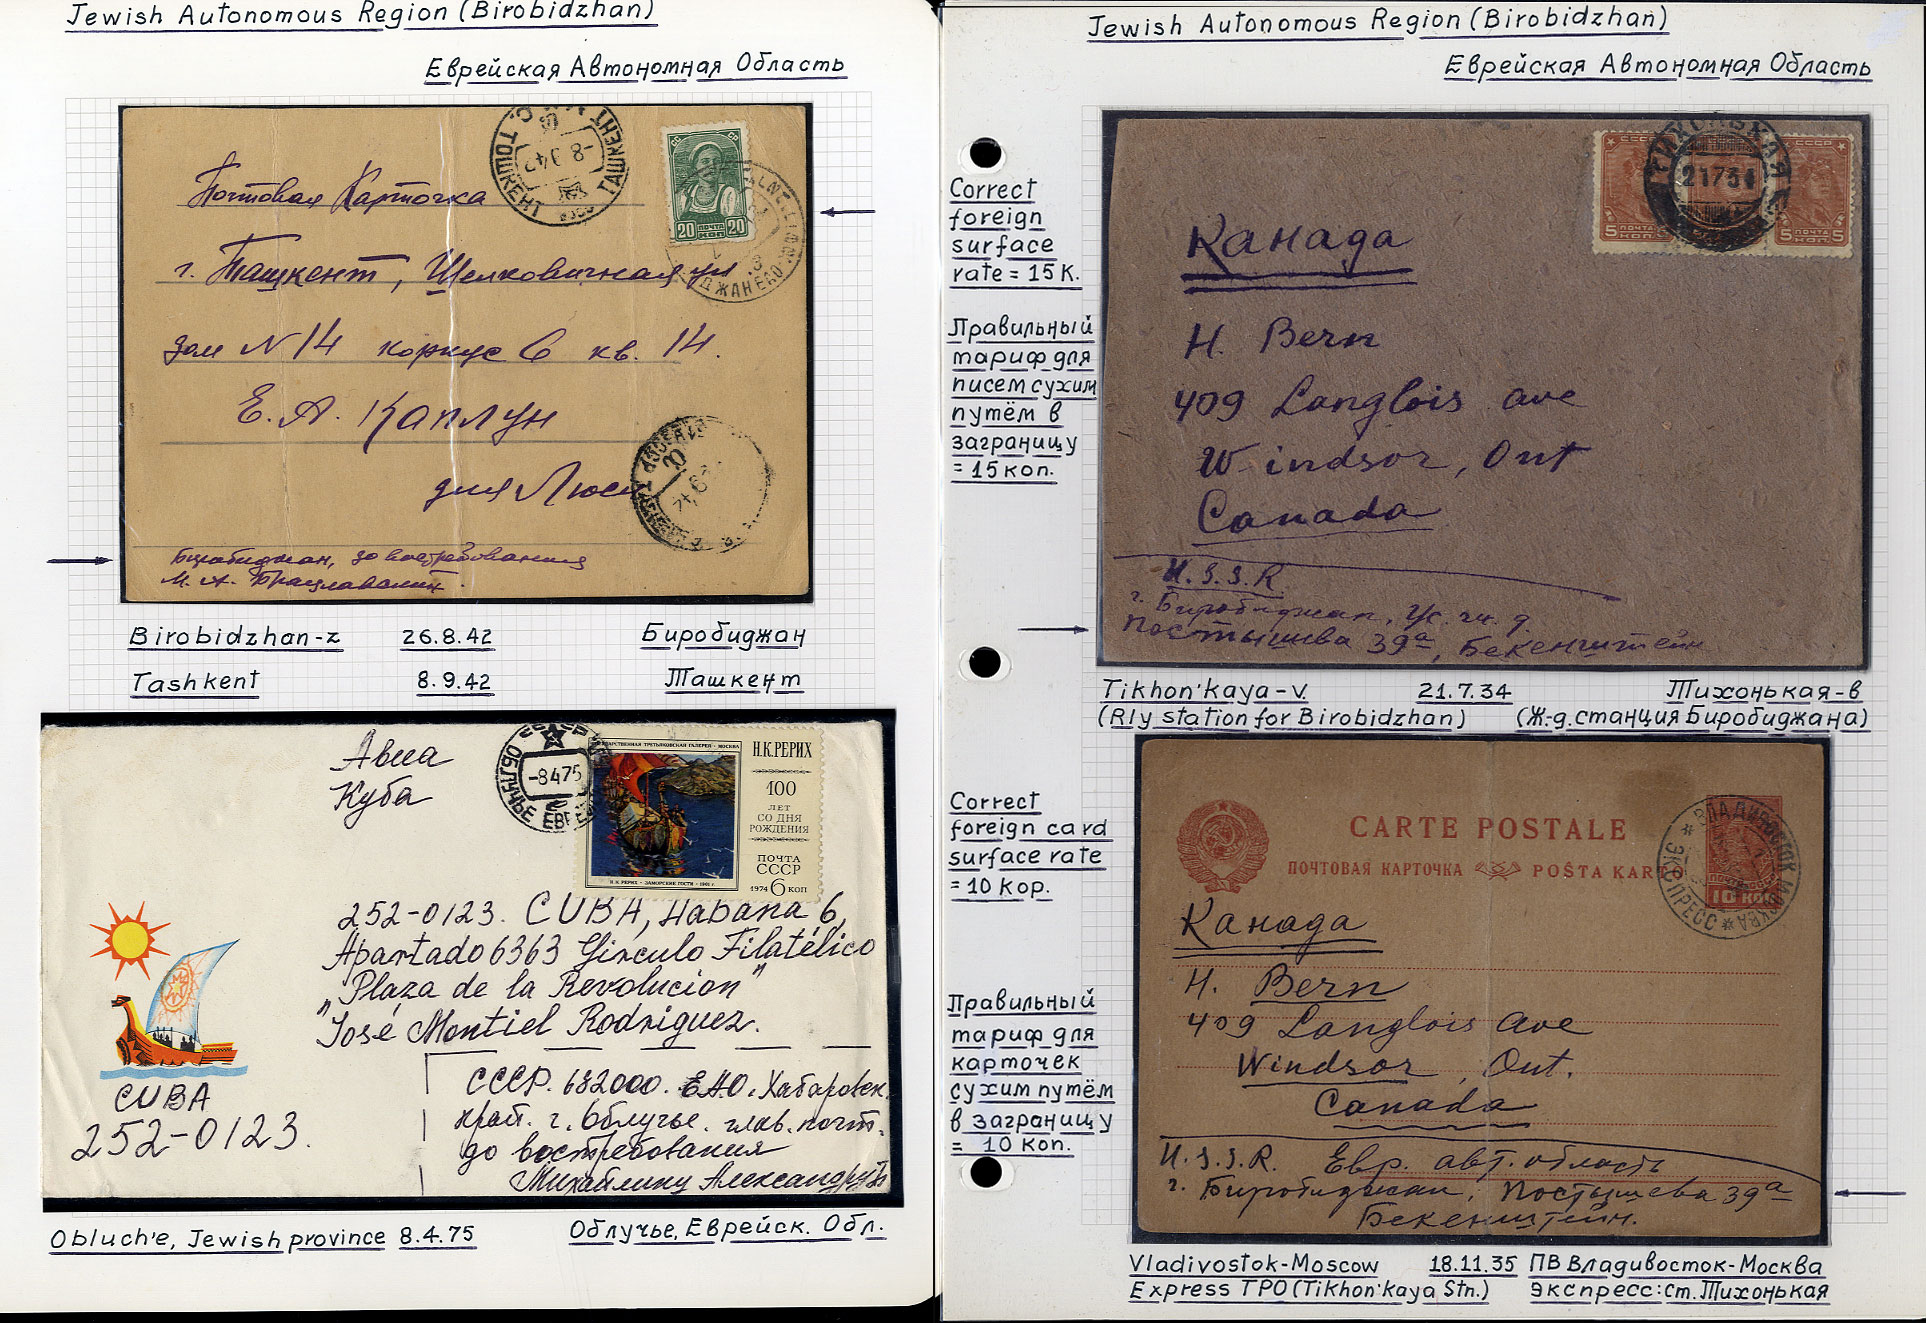 Jewish Autonomous Region (Birobidzhan)
Еврейская Автономная Область
Почтовая Карточка
г. Ташкент, Шелковичная ул
дом N 14 корпус 6 кв. 14.
Е. А. Каплун
для Люси
Биробиджан, до востребования
М. А. Брацлавский.
ТОШКЕНТ ТАШКЕНТ
-8 9 42
20 ПОЧТА 20
КОП
Birobidzhan-z 26.8.42 Биробиджан
Tashkent 8.9.42 Ташкент
Авиа
Куба
ОБЛУЧЬЕ ЕВРЕЙ
-8475
ГОСУДАРСТВЕННАЯ ТРЕТЬЯКОВСКАЯ ГАЛЕРЕЯ · МОСКВА
Н.К.РЕРИХ
100
ЛЕТ
СО ДНЯ
РОЖДЕНИЯ
ПОЧТА
СССР
1974 6 КОП
Н.К. РЕРИХ · ЗАМОРСКИЕ ГОСТИ · 1901 г.
252-0123. CUBA, Habana 6,
Apartado 6363 Girculo Filatélico
"Plaza de la Revolucion"
"José Montiel Rodriguez.
CUBA
252-0123.
СССР. 682000. ЕАО. Хабаровск.
край. г. Облучье. глав. почт.
до востребования
Михайлину Александру
Obluch'e, Jewish province 8.4.75 Облучье, Еврейск. Обл.
Jewish Autonomous Region (Birobidzhan)
Еврейская Автономная Область
Correct
foreign
surface
rate = 15 K.
Правильный
тариф для
писем сухим
путём в
заграницу
= 15 коп.
ТИХОНЬКАЯ
21734
5 ПОЧТА
КОП.
ПОЧТА 5
КОП.
Канада
H. Bern
409 Langlois ave
Windsor, Ont
Canada
U.S.S.R
г. Биробиджан, Ус. чи. д.
Постышева 39а, Бекенштейн
Tikhon'kaya-v 21.7.34 Тихонькая-в
(Rly station for Birobidzhan) (Ж.-д. станция Биробиджана)
Correct
foreign card
surface rate
= 10 kop.
Правильный
тариф для
карточек
сухим путём
в заграницу
= 10 коп.
CARTE POSTALE
ПОЧТОВАЯ КАРТОЧКА POŜTA KART
ВЛАДИВОСТОК МОСКВА
ЭКСПРЕСС
10 КОП
Канада
H. Bern
409 Langlois Ave
Windsor, Ont.
Canada
U.S.S.R. Евр. авт. область
г. Биробиджан, Постышева 39а
Бекенштейн.
Vladivostok-Moscow 18.11.35 ПВ Владивосток-Москва
Express TPO (Tikhon'kaya Stn.) Экспресс: ст. Тихонькая